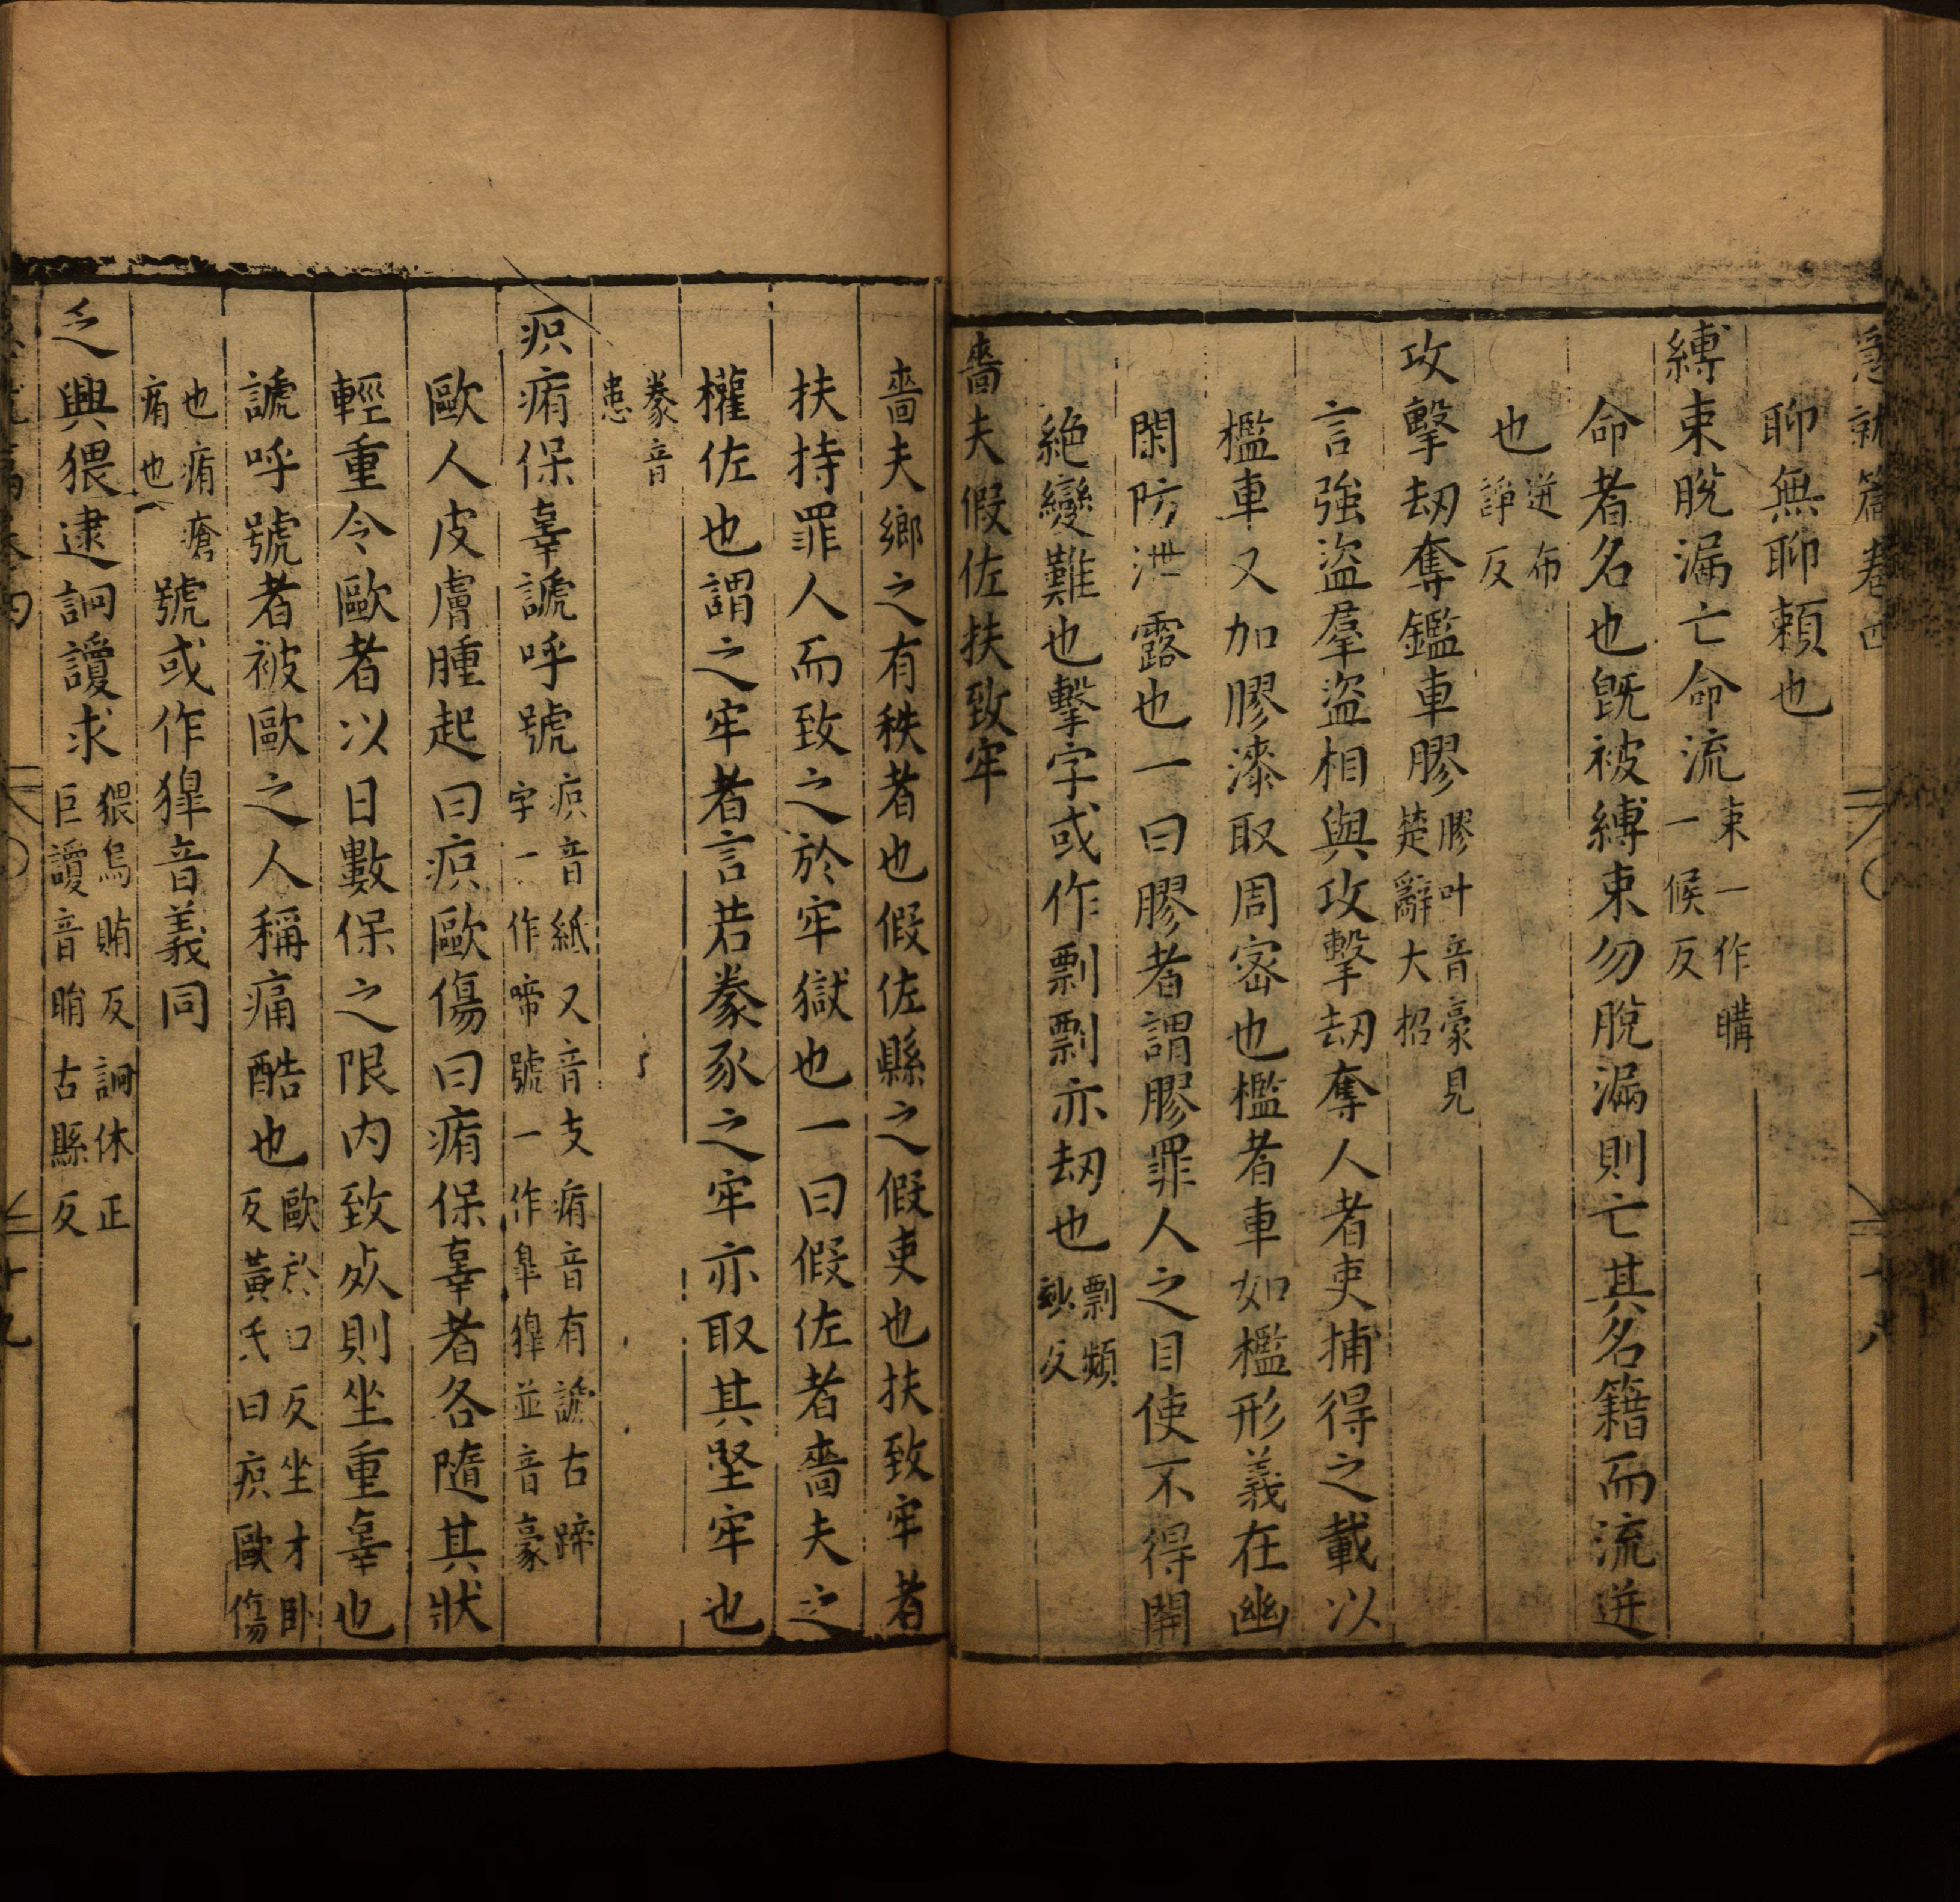 急就篇卷四
十八
聊無聊賴也
縛束脫漏亡命流束一作購一候反
命者名也旣被縛束勿脫漏則亡其名籍而流迸
也迸布諍反
攻擊刼奪鑑車膠膠叶音豪見楚辭大招
言強盜羣盜相與攻擊刼奪人者吏捕得之載以
檻車又加膠漆取周密也檻者車如檻形義在幽
閑防泄露也一曰膠者謂膠罪人之目使不得開
絕變難也擊字或作剽剽亦刼也剽頻妙反
嗇夫假佐扶致牢
嗇夫鄉之有秩者也假佐縣之假吏也扶致牢者
扶持罪人而致之於牢獄也一曰假佐者嗇夫之
權佐也謂之牢者言若豢豕之牢亦取其堅牢也
豢音患
疻痏保辜謕呼號疻音紙又音支痏音有謕古蹄字一作啼號一作皐獋並音豪
歐人皮膚腫起曰疻歐傷曰痏保辜者各隨其狀
輕重令歐者以日數保之限內致死則坐重辜也
謕呼號者被歐之人稱痛酷也歐於口反坐才卧反黃氏曰疻歐傷
也痏瘡痏也號或作獋音義同
乏興猥逮詗讂求猥烏賄反詗休正巨讂音睊古縣反
十九